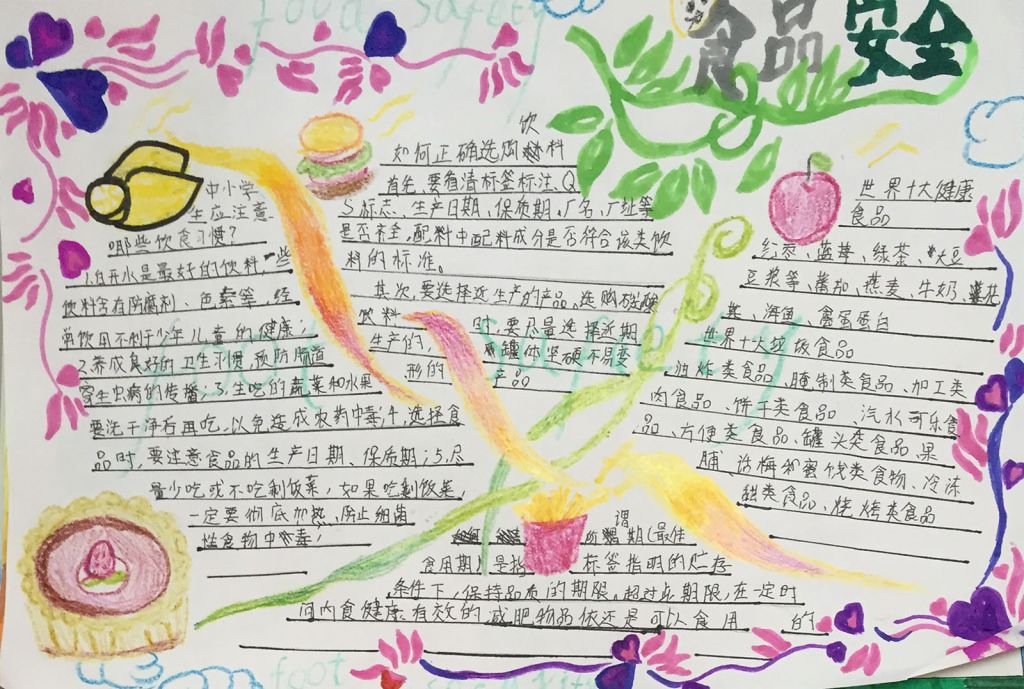 Food Safety
食品安全
中小学
生应注意
哪些饮食习惯?
1.白开水是最好的饮料,一些
饮料含有防腐剂、色素等,经
常饮用不利于少年儿童的健康;
2.养成良好的卫生习惯,预防肠道
寄生虫病的传播;3.生吃的蔬菜和水果
要洗干净后再吃,以免造成农药中毒;4.选择食
品时,要注意食品的生产日期、保质期;5.尽
量少吃或不吃剩饭菜,如果吃剩饭菜,
一定要彻底加热,防止细菌
性食物中毒;
饮
如何正确选购料
首先,要看清标签标注、Q
S标志、生产日期、保质期、厂名、厂址等
是否齐全,配料中配料成分是否符合该类饮
料的标准。
其次,要选择近生产的产品,选购碳酸
饮料时,要尽量选择近期
生产的,罐体坚硬不易变
形的产品
世界十大健康
食品
红枣、蓝莓、绿茶、大豆
豆浆等、番茄、燕麦、牛奶、
海鱼、禽蛋蛋白
世界十大垃圾食品
油炸类食品、腌制类食品、加工类
肉食品、饼干类食品、汽水可乐食
品、方便类食品、罐头类食品、果
脯话梅和蜜饯类食物、冷冻
甜类食品、烧烤类食品
谓
所期(最佳
食用期)是指标签指明的贮存
条件下,保持品质的期限,超过此期限,在一定时
间内食健康有效的减肥物品依还是可以食用的